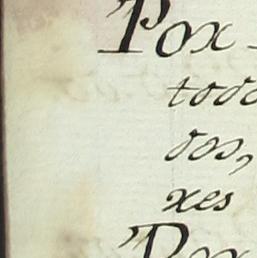 Pox
todo
dos,
xes
Pox